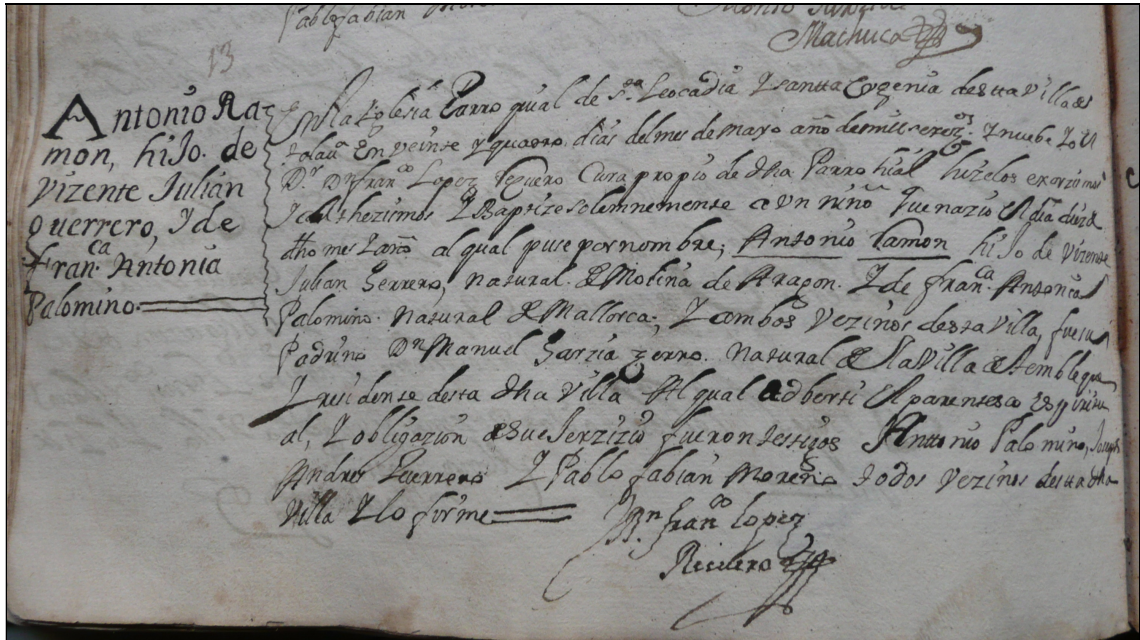 Pablo fabian
Machuca
13
Antonio Ra-
mon, hiJo. de
Vizente Julian
Guerrero, Y de
Fran.ca Antonia
Palomino.
En la Iglesia Parroquial de S.ta Leocadia Y Santta Eugenia desta Villa de
En veinte y quatro dias del mes de mayo año de mill Y nuebe Yo el
D.r D.n fran.co Lopez Cura propio de dha Parrochial hize los exorzismos
Y Baptize solemnemente a Un niño Que nazio el dia diez de
dho mes Y año al qual puse por nombre, Antonio Ramon hiJo de Vizente
Julian Gerrero, natural de Molina de Aragon. Y de fran.ca Antonia
Palomino. natural de Mallorca, Y ambos Vezinos desta Villa, fue su
Padrino D.n Manuel Garzia Zerro. natural de la Villa de tembleque
Y residente desta dha Villa Al qual adberti El parentesco espiritu
al, Y obligazion fueron testigos Antonio Palomino, Joseph
Andres Guerrero Y Pablo fabian Moreno todos Vezinos desta dha
Villa Y lo firme
D.n fran.co Lopez